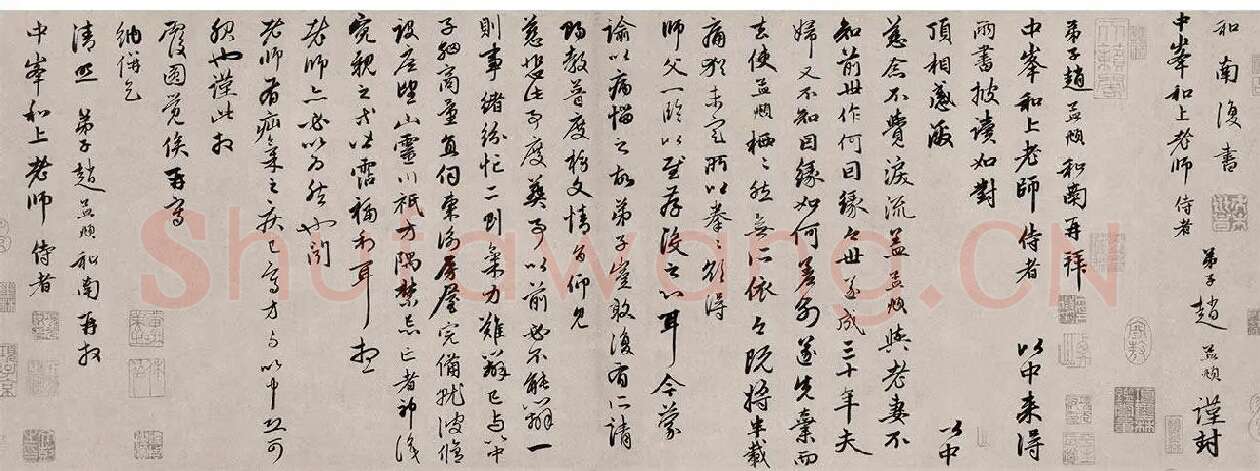 和南復書
弟子趙孟頫謹封
中峯和上老师侍者
弟子趙孟頫和南再拜
中峯和上老師侍者 以中来得
兩書披讀如對
頂相感激 以中
慈念不覺淚流蓋孟頫與老妻不
知前世作何因緣今世遂成三十年夫
婦又不知因緣如何差别遂先棄而
去使孟頫栖栖然無所依今既將半載
痛猶未定所以拳拳欲得
師父一臨以慰存没之心耳今蒙
諭以病惱之故弟子豈敢復有所請
賜教普度榜文情旨仰見
慈悲此事度葬事以前必不能辦一
則事緒紛忙二則氣力難辦已与以中
子細商量直伺東衡房屋完備脩
設山靈川祇方隅禁忌亡者神識
冤親之等以霑福利耳想
老师亦必以為然也聞
老师有疝氣之疾已寫方与以中恐可
服也謹此拜
覆圓覺俟再寫
納併乞
清照弟子趙孟頫和南再拜
中峯和上老师侍者
Shufawang.CN